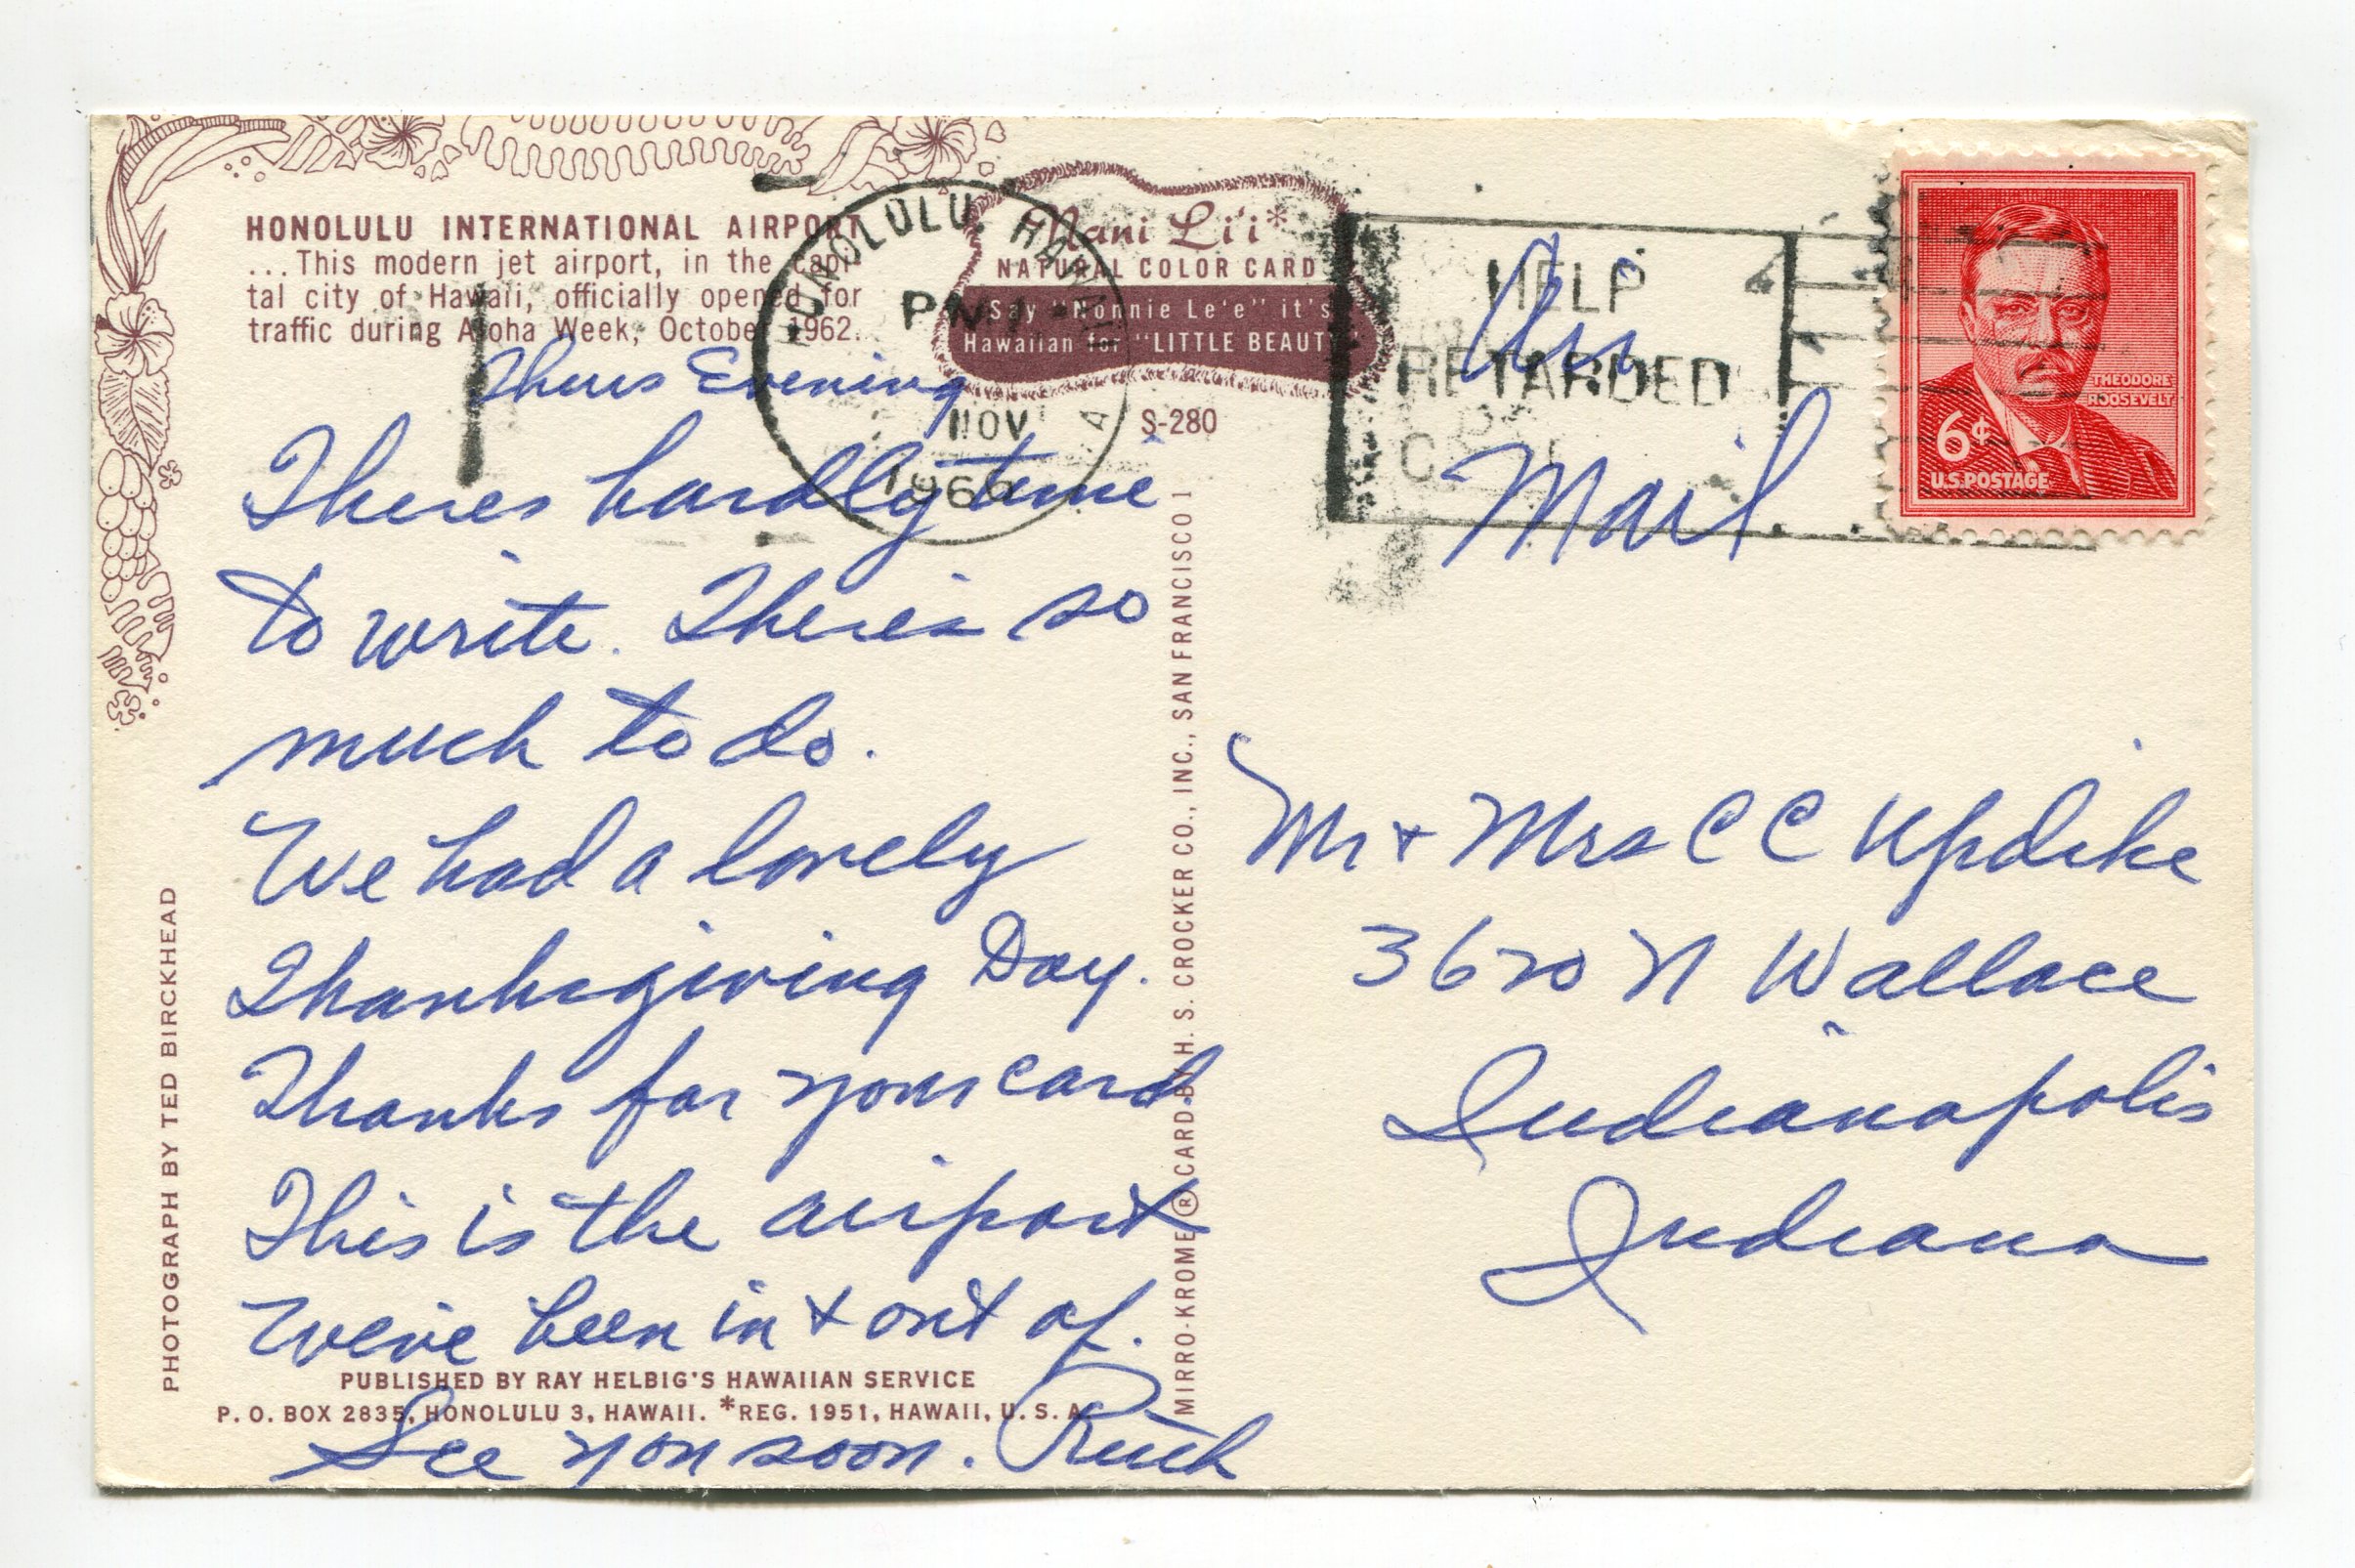 HONOLULU INTERNATIONAL AIRPORT
...This modern jet airport, in the capi-
tal city of Hawaii, officially opened for
traffic during Aloha Week, October 1962.
Nani Li'i*
NATURAL COLOR CARD
Say "Nonnie Le'e" it's
Hawaiian for "LITTLE BEAUTY"
S-280
HONOLULU, HAWAII
PM
NOV
196
HELP
RETARDED
THEODORE
ROOSEVELT
6¢
U.S. POSTAGE
Thurs Evening
Theres hardly time
to write. There's so
much to do.
We had a lovely
Thanksgiving Day.
Thanks for your card.
This is the airport
we've been in & out of.
See you soon. Ruth
Air
Mail
Mr & Mrs C C Updike
3620 N Wallace
Indianapolis
Indiana
PHOTOGRAPH BY TED BIRCKHEAD
MIRRO-KROME ® CARD BY H. S. CROCKER CO., INC., SAN FRANCISCO 1
PUBLISHED BY RAY HELBIG'S HAWAIIAN SERVICE
P. O. BOX 2835, HONOLULU 3, HAWAII. *REG. 1951, HAWAII, U. S. A.